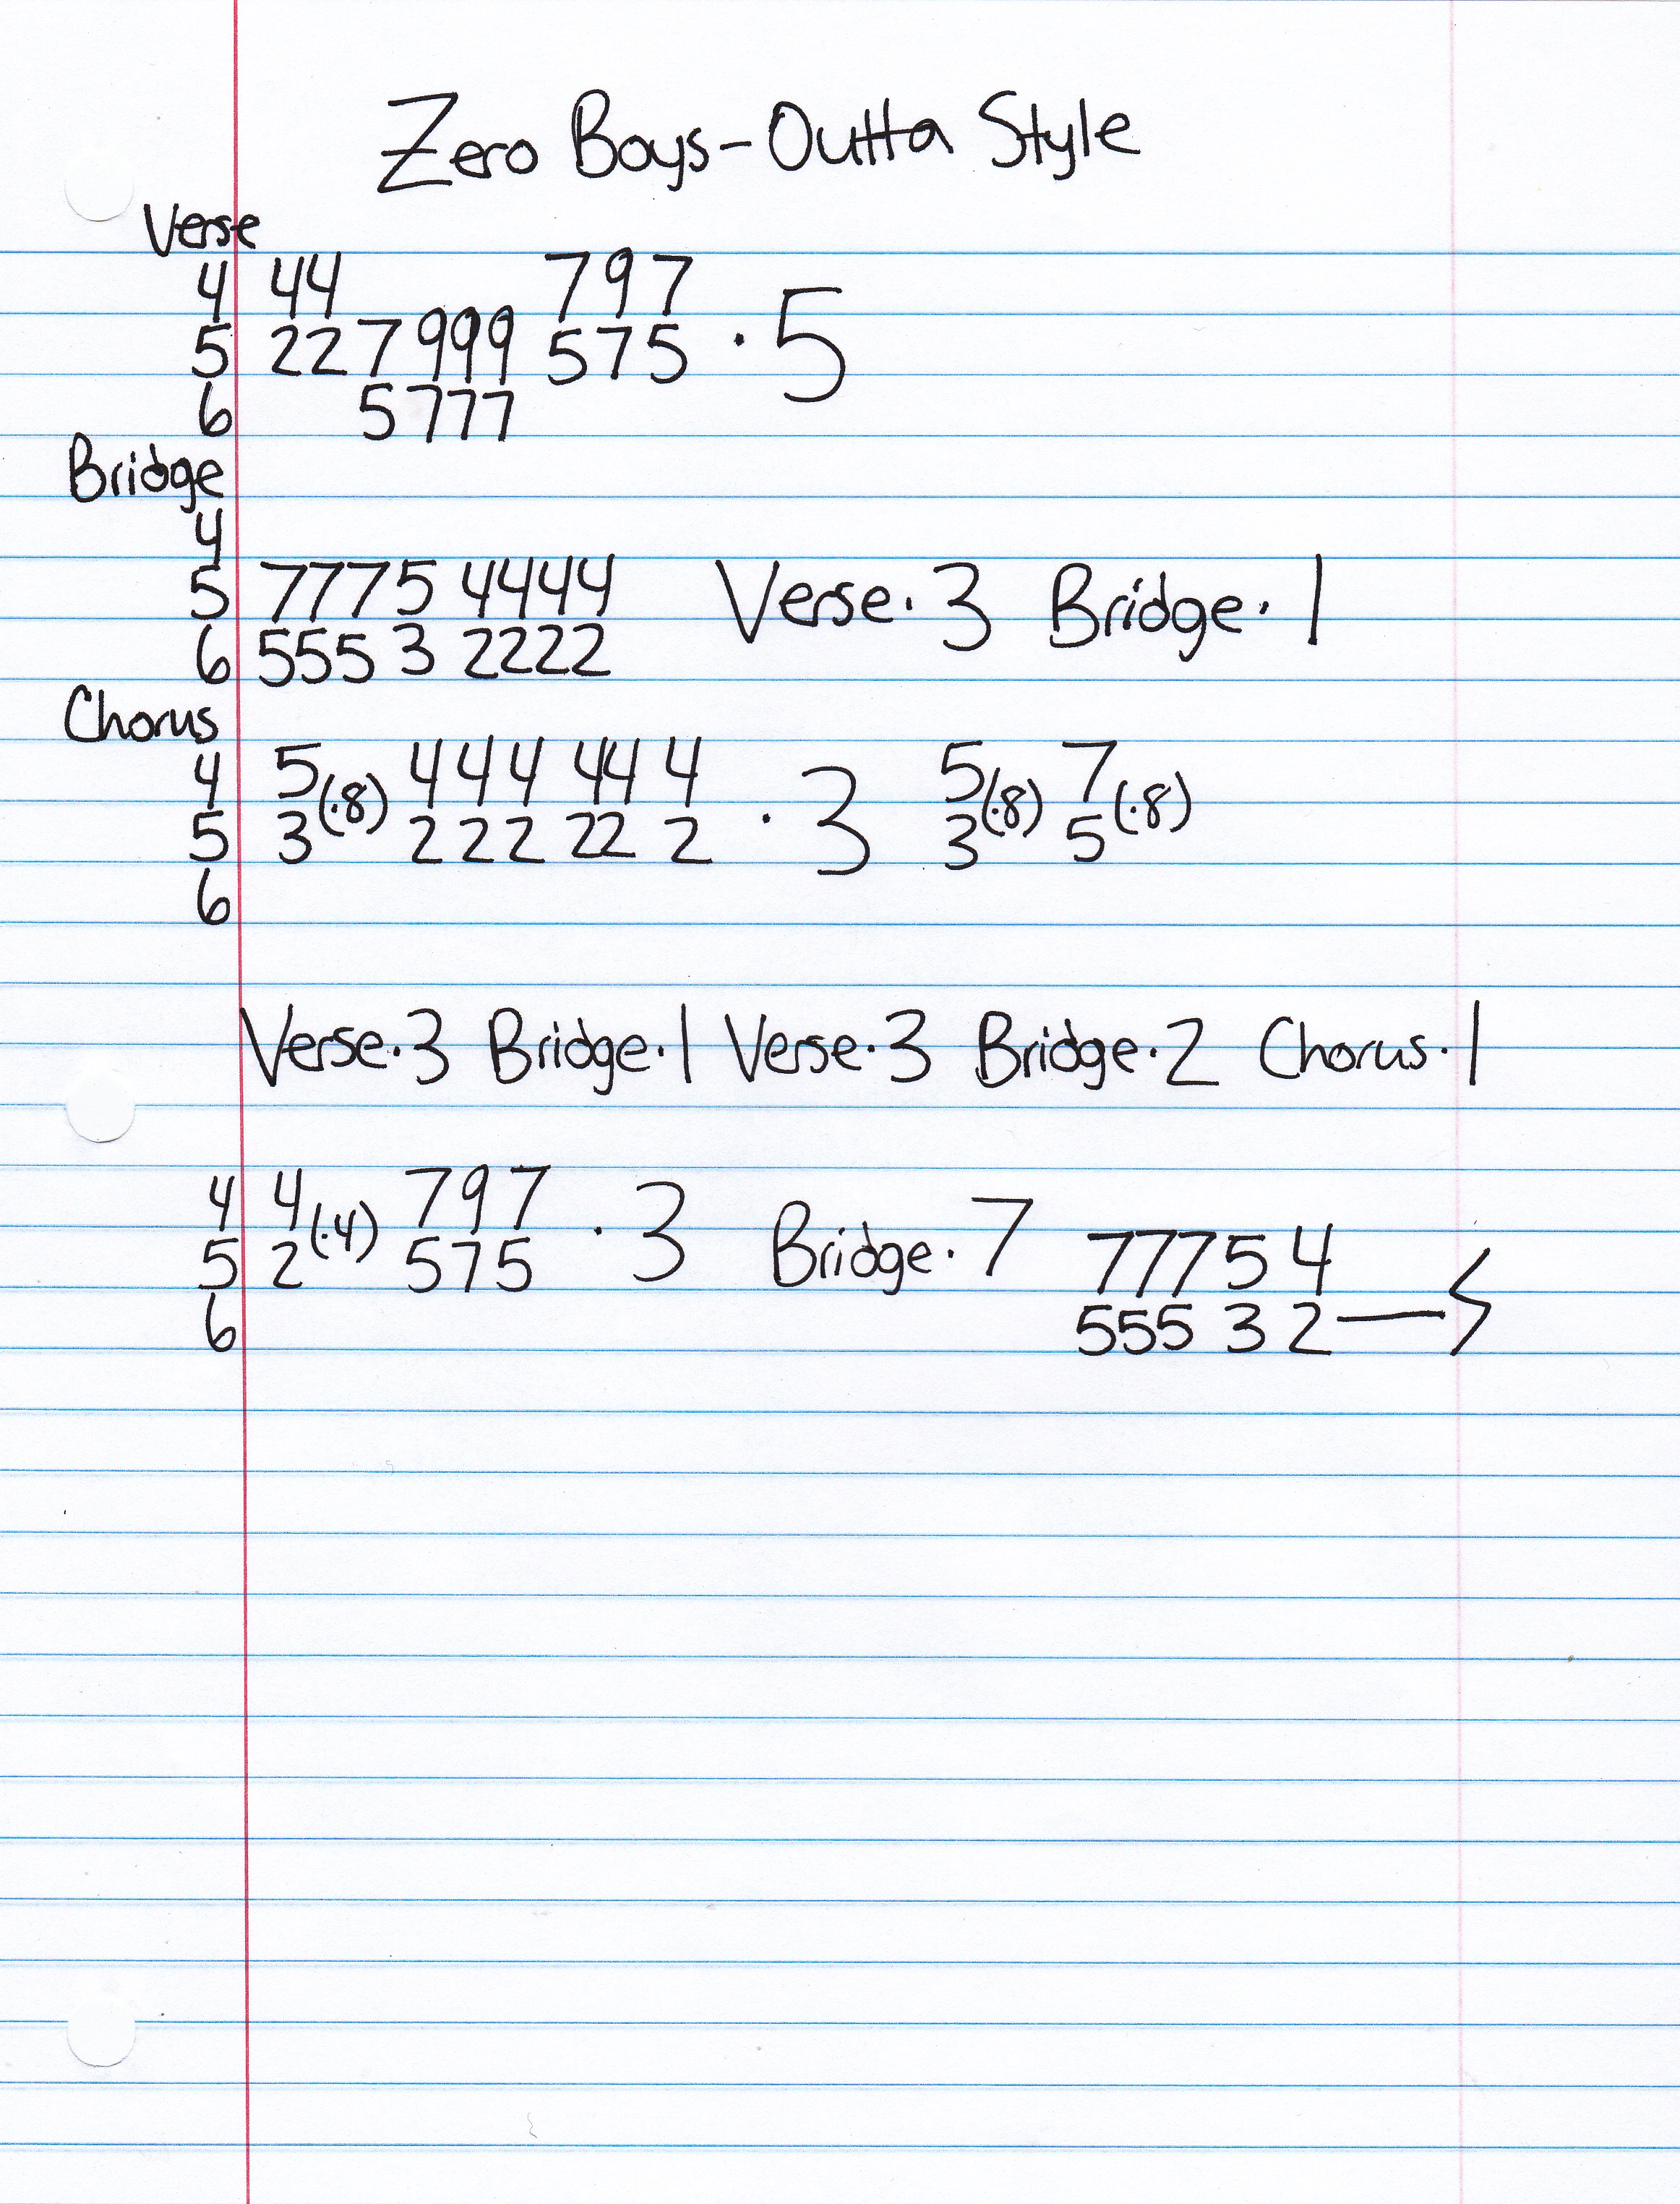 Zero Boys-Outta Style
Verse
4 44 797
5 22 7 999 575 · 5
6 5777
Bridge
4
5 7775 4444 Verse · 3 Bridge · 1
6 555 3 2222
Chorus
4 5 (·8) 4 4 4 44 4 · 3 5 (·8) 7 (·8)
5 3 2 2 2 22 2 3 5
6
Verse · 3 Bridge · 1 Verse · 3 Bridge · 2 Chorus · 1
4 4 (·4) 797 · 3 Bridge · 7
5 2 575 777 5 4
6 555 3 2